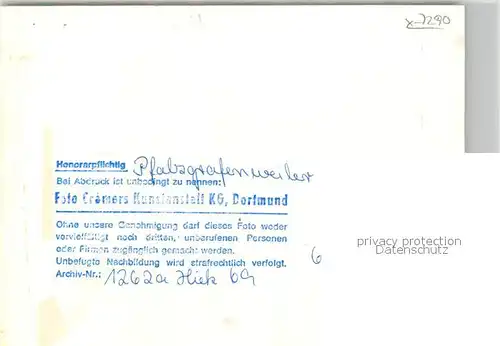 x-7290
Honorarpflichtig Pfalzgrafenweiler
Bei Abdruck ist unbedingt zu nennen:
Foto Cramers Kunstanstalt KG, Dortmund
Ohne unsere Genehmigung darf dieses Foto weder
vervielfältigt noch dritten, unberufenen Personen
oder Firmen zugänglich gemacht werden.
Unbefugte Nachbildung wird strafrechtlich verfolgt.
Archiv-Nr.: 1262a
6
privacy protection
Datenschutz